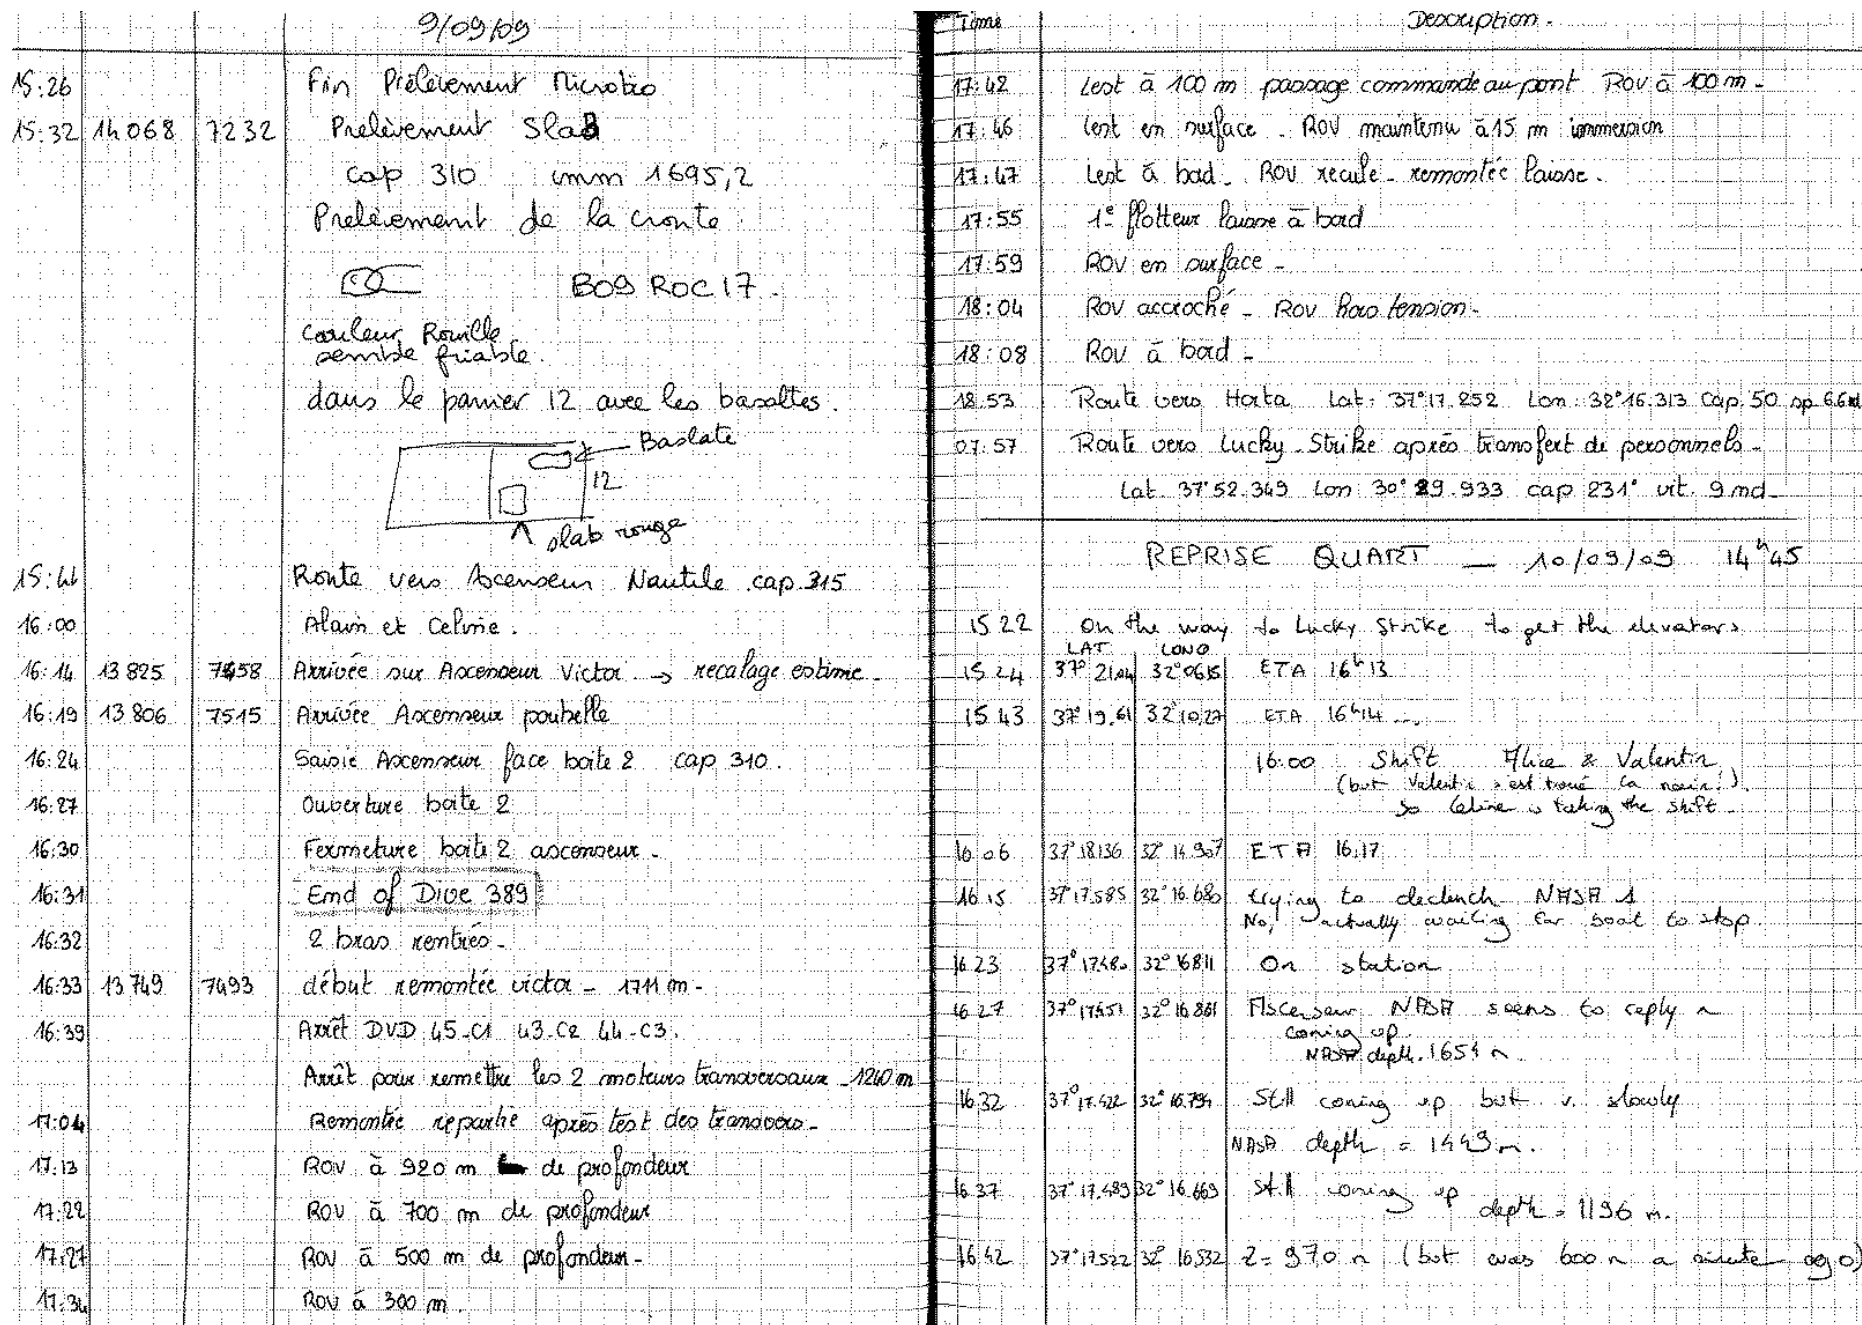 9/09/09
15:26 Fin Prélèvement Microbio
15:32 14068 7232 Prelèvement Slab
cap 310 imm 1695,2
Prelèvement de la croute.
B09 ROC 17.
Couleur Rouille
semble friable.
dans le panier 12 avec les basaltes.
Baslate
12
slab rouge
15:44 Route vers Ascenseur Nautile cap 315
16:00 Alain et Celine.
16:14 13825 7458 Arrivée sur Ascenseur Victor → recalage estime.
16:19 13806 7515 Arrivée Ascenseur poubelle
16:24 Saisie Ascenseur face boite 2 cap 310.
16:27 Ouverture boite 2
16:30 Fermeture boite 2 ascenseur.
16:31 End of Dive 389
16:32 2 bras rentrés.
16:33 13749 7493 début remontée victor - 1711 m -
16:39 Arrêt DVD 45-C1 43-C2 44-C3.
Arrêt pour remettre les 2 moteurs transversaux - 1240 m
17:04 Remontée repartie après test des transvers -
17:13 ROV à 920 m de profondeur
17:22 ROV à 700 m de profondeur
17:27 ROV à 500 m de profondeur -
17:34 ROV à 300 m.
Time Description -
17:42 Lest à 100 m passage commande au pont ROV à 100 m -
17:46 lest en surface - ROV maintenu à 15 m immersion
17:47 Lest à bad - ROV recule - remontée laisse -
17:55 1e flotteur laisse à bord
17:59 ROV en surface -
18:04 ROV accroché - ROV hors tension -
18:08 ROV à bord -
18:53 Route vers Horta Lat: 37°17.252 Lon: 32°16.313 Cap 50 sp 6.6nd
07:57 Route vers Lucky-Strike après transfert de personnels -
Lat. 37°52.349 Lon 30°29.933 cap 231° vit. 9 nd -
REPRISE QUART — 10/09/09 14h45
15 22 On the way to Lucky Strike to get the elevators
LAT LONG
15 24 37° 21.04 32°06.15 ETA 16h13
15 43 37°19.61 32°10.27 ETA 16h14 ...
16:00 Shift Alice & Valentin
(but Valentin s'est troué la main!)
so Celine is taking the shift.
16 06 37°18136 32° 14 907 ETA 16:17
16 15 37°17.585 32° 16.680 trying to declench NASA 1
No, actually waiting for boat to stop.
16 23 37°17.480 32°16811 On station
16 27 37°17451 32°16 861 Ascenseur NASA seems to reply ~
coming up.
NASA depth. 1654 m.
16 32 37°17.422 32° 16.794 Still coming up but v. slowly
NASA depth = 1449 m.
16 37 37°17.489 32°16.669 Still coming up
depth = 1196 m.
16 42 37°17.522 32° 16532 Z = 970 m (but was 600 m a minute ago)